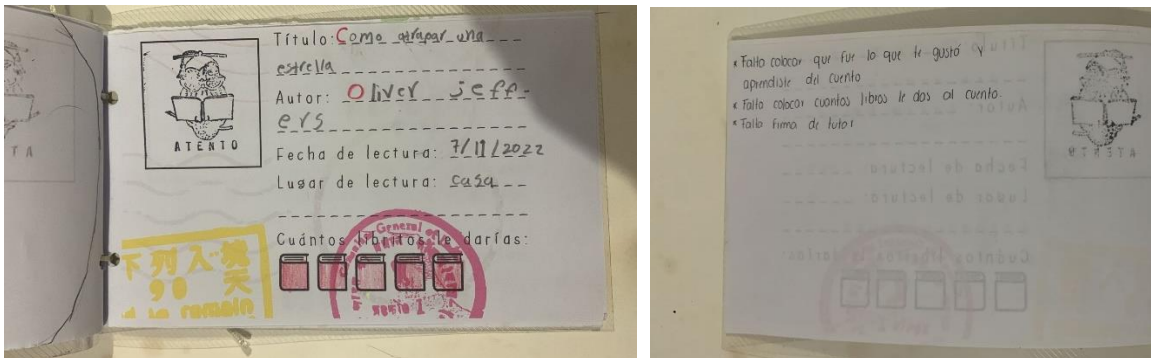 Título: Como atrapar una
estrella
Autor: Oliver jeff-
ers
Fecha de lectura: 7/11/2022
Lugar de lectura: casa
Cuántos libritos le darías:
ATENTO
TA
下列入境
90 天
General of
* Falto colocar que fue lo que te gustó y
aprendiste del cuento
* Falta colocar cuantos libros le das al cuento.
* Falta firma de tutor